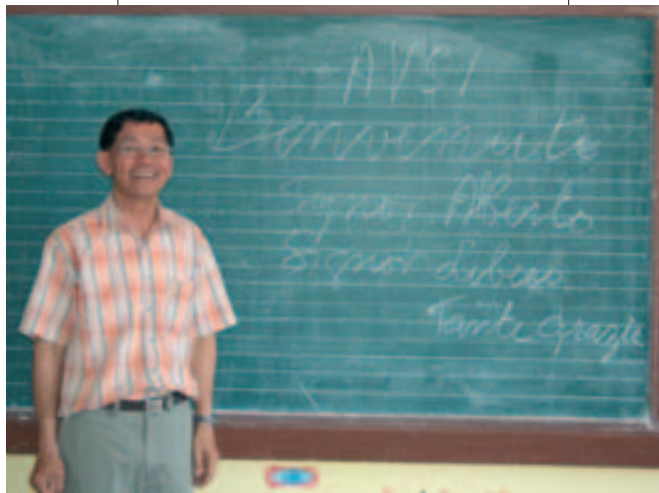 AVSI
Benvenuti
Signor Alberto
Signor Libero
Tante grazie